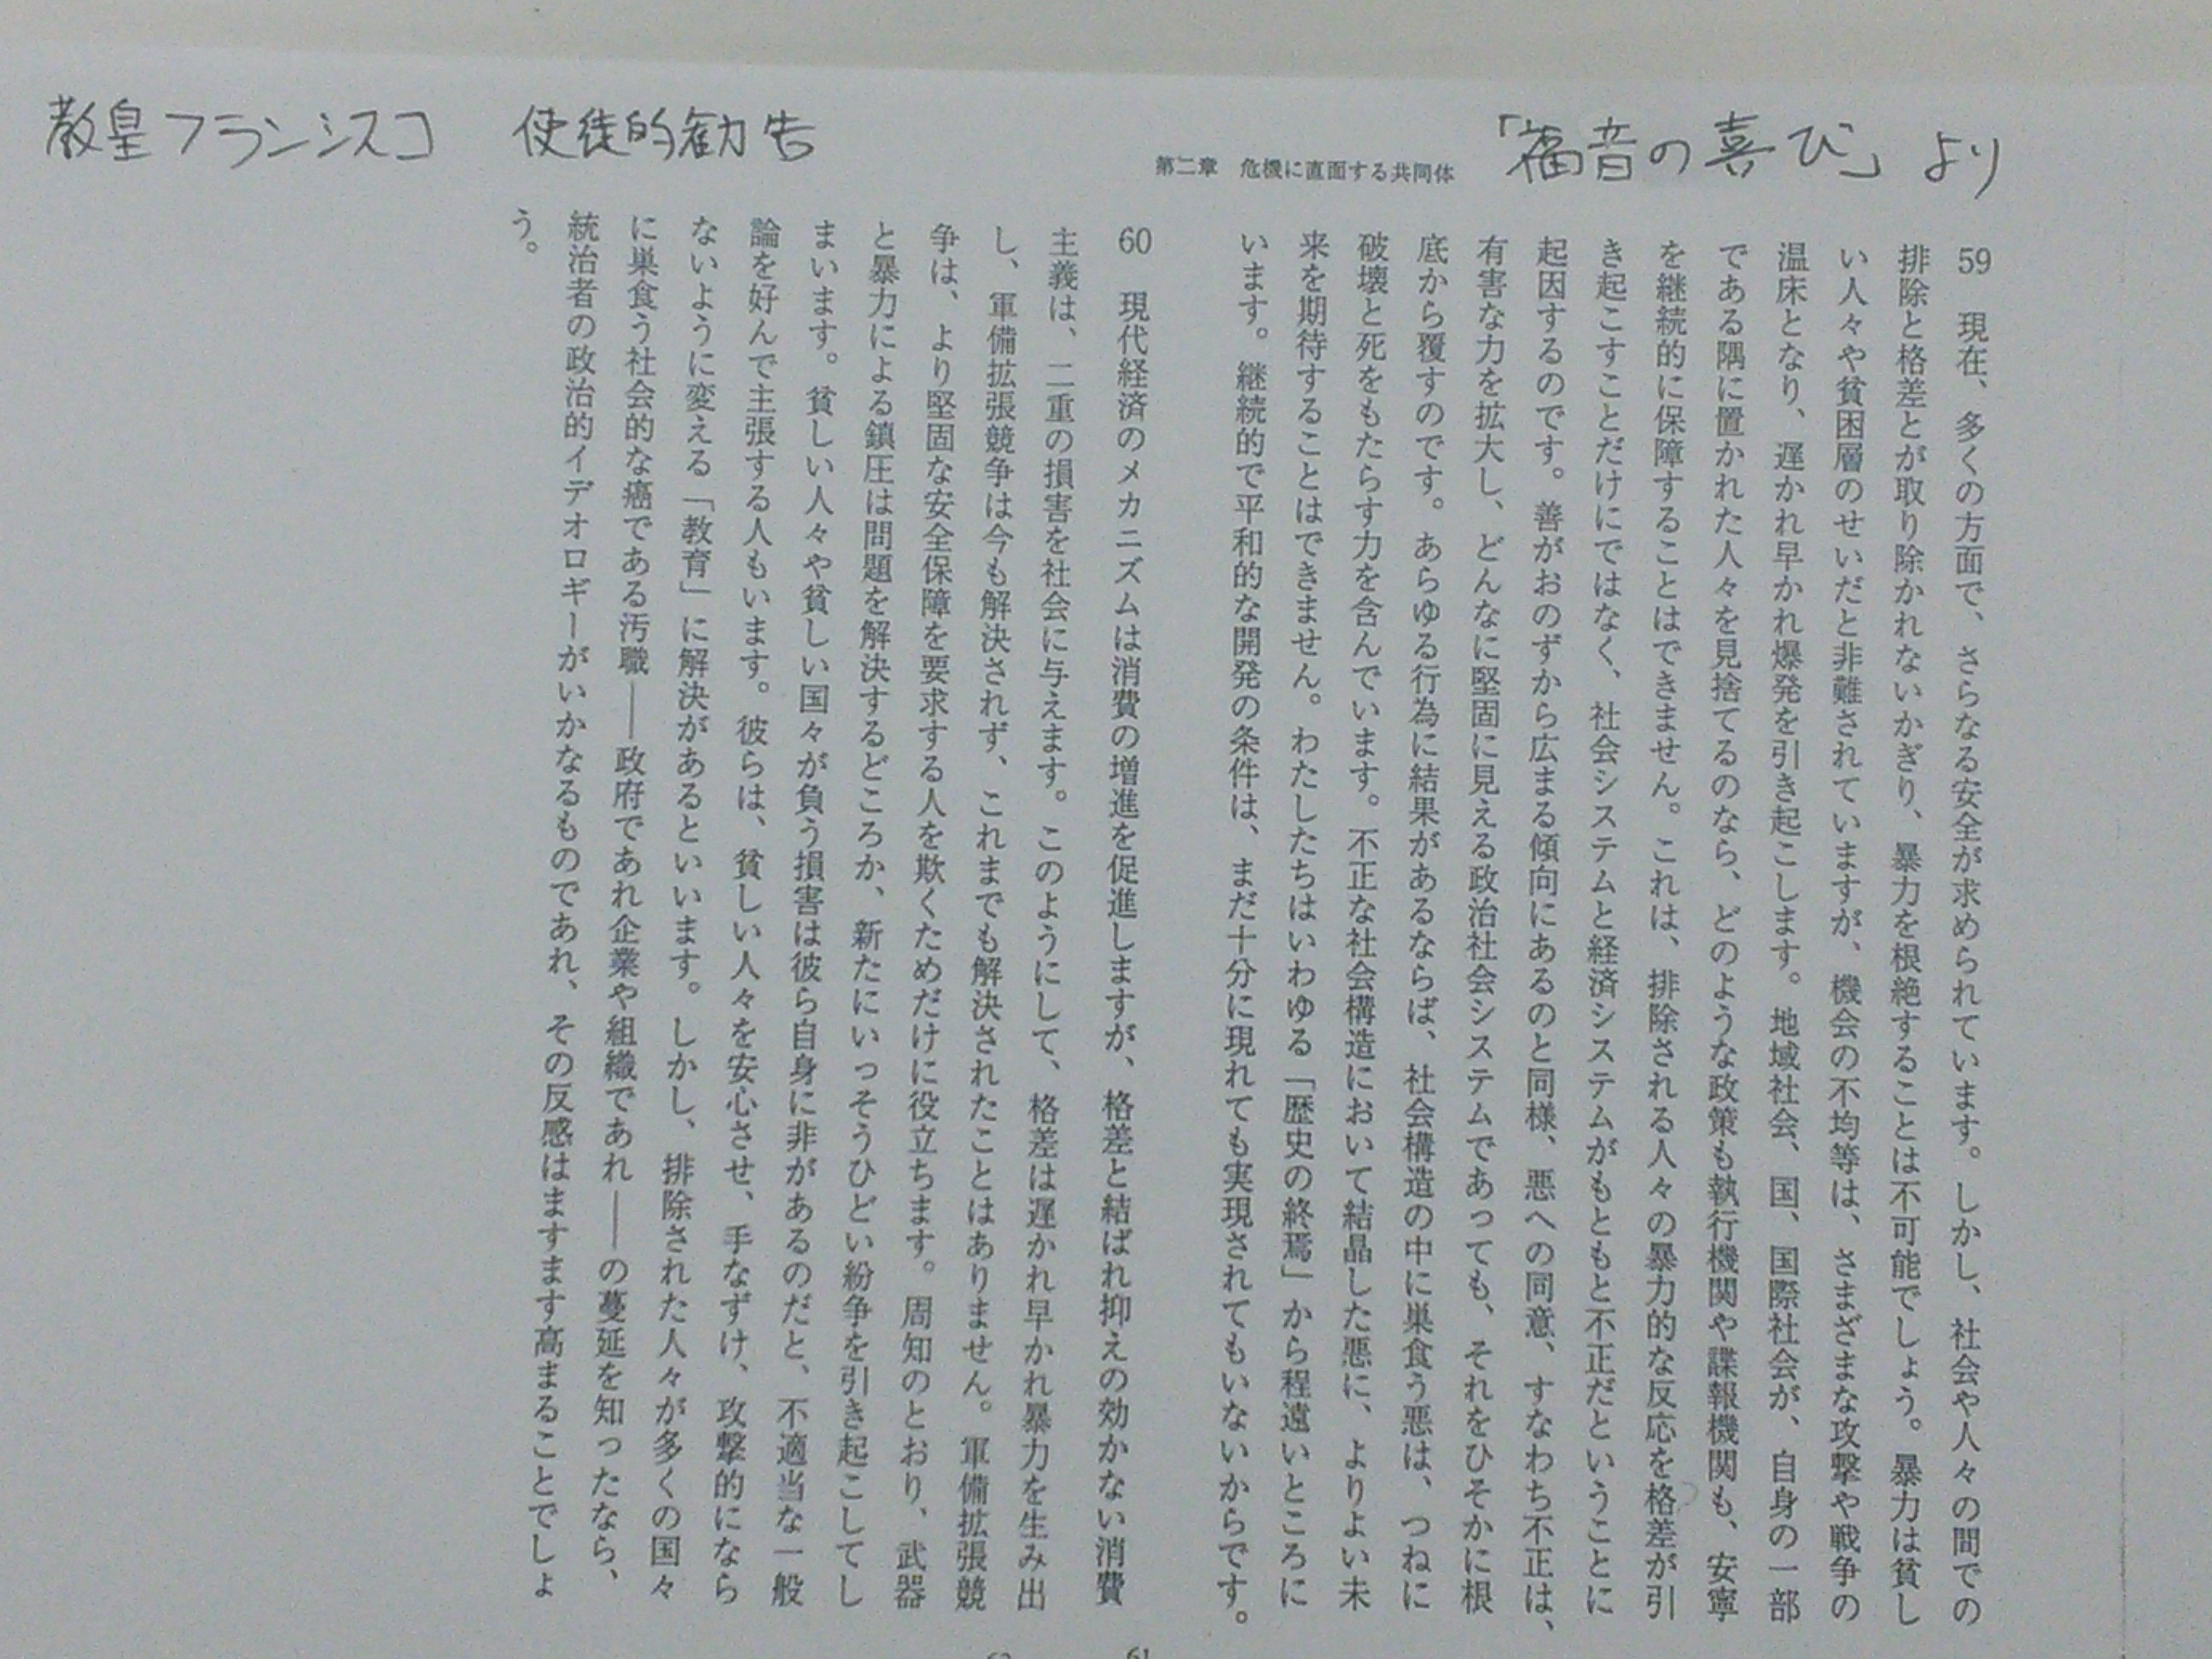 教皇フランシスコ　使徒的勧告　「福音の喜び」より
第二章　危機に直面する共同体
59　現在、多くの方面で、さらなる安全が求められています。しかし、社会や人々の間での
排除と格差とが取り除かれないかぎり、暴力を根絶することは不可能でしょう。暴力は貧し
い人々や貧困層のせいだと非難されていますが、機会の不均等は、さまざまな攻撃や戦争の
温床となり、遅かれ早かれ爆発を引き起こします。地域社会、国、国際社会が、自身の一部
である隅に置かれた人々を見捨てるのなら、どのような政策も執行機関や諜報機関も、安寧
を継続的に保障することはできません。これは、排除される人々の暴力的な反応を格差が引
き起こすことだけにではなく、社会システムと経済システムがもともと不正だということに
起因するのです。善がおのずから広まる傾向にあるのと同様、悪への同意、すなわち不正は、
有害な力を拡大し、どんなに堅固に見える政治社会システムであっても、それをひそかに根
底から覆すのです。あらゆる行為に結果があるならば、社会構造の中に巣食う悪は、つねに
破壊と死をもたらす力を含んでいます。不正な社会構造において結晶した悪に、よりよい未
来を期待することはできません。わたしたちはいわゆる「歴史の終焉」から程遠いところに
います。継続的で平和的な開発の条件は、まだ十分に現れても実現されてもいないからです。
60　現代経済のメカニズムは消費の増進を促進しますが、格差と結ばれ抑えの効かない消費
主義は、二重の損害を社会に与えます。このようにして、格差は遅かれ早かれ暴力を生み出
し、軍備拡張競争は今も解決されず、これまでも解決されたことはありません。軍備拡張競
争は、より堅固な安全保障を要求する人を欺くためだけに役立ちます。周知のとおり、武器
と暴力による鎮圧は問題を解決するどころか、新たにいっそうひどい紛争を引き起こしてし
まいます。貧しい人々や貧しい国々が負う損害は彼ら自身に非があるのだと、不適当な一般
論を好んで主張する人もいます。彼らは、貧しい人々を安心させ、手なずけ、攻撃的になら
ないように変える「教育」に解決があるといいます。しかし、排除された人々が多くの国々
に巣食う社会的な癌である汚職――政府であれ企業や組織であれ――の蔓延を知ったなら、
統治者の政治的イデオロギーがいかなるものであれ、その反感はますます高まることでしょ
う。
61